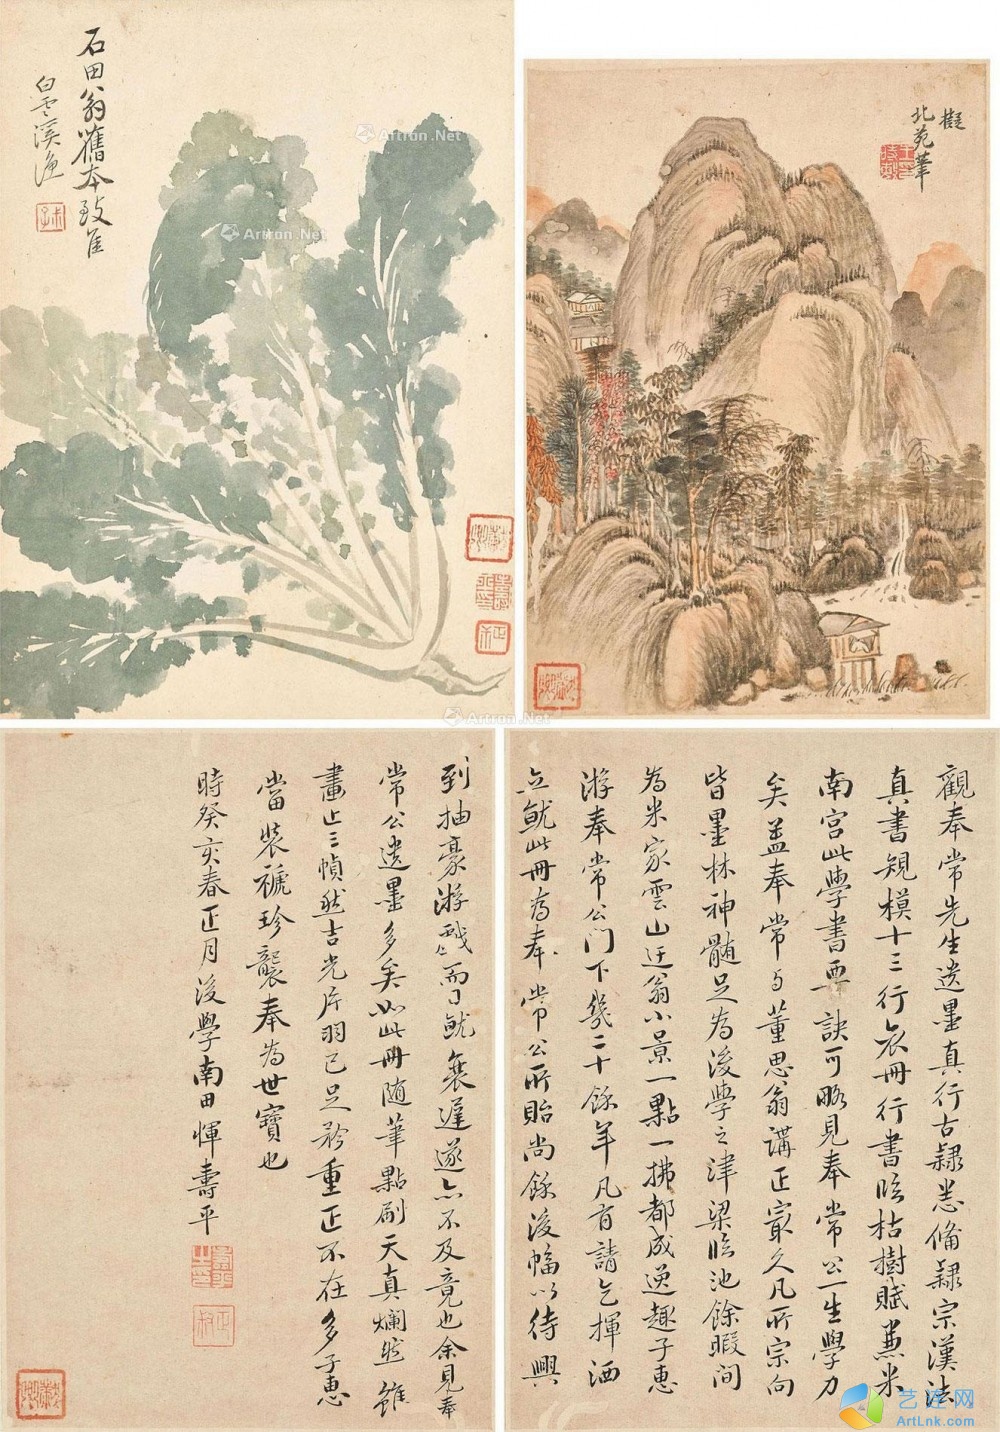 石田翁舊本致佳
白雲溪漁
擬
北苑筆
觀奉常先生遺墨真行古隸悉備隸宗漢法
真書規模十三行衣冊行書臨枯樹賦兼米
南宮此學書要訣可略見奉常公一生學力
矣蓋奉常與董思翁講正最久凡所宗向
皆墨林神髓足為後學之津梁臨池餘暇間
為米家雲山迂翁小景一點一拂都成逸趣子惠
游奉常公門下幾二十餘年凡有請乞揮洒
立就此冊為奉常公所貽尚餘後幅以待興
到抽豪游戲而了就衰遲遂亦不及竟也余見奉
常公遺墨多矣如此冊隨筆點刷天真爛然雖
畫止三幀然吉光片羽已足矜重正不在多子惠
當裝褫珍襲奉為世寶也
時癸亥春正月後學南田惲壽平
Artron.Net
Artron.Net
Artron.Net
Artron.Net
艺连网
ArtLnk.com